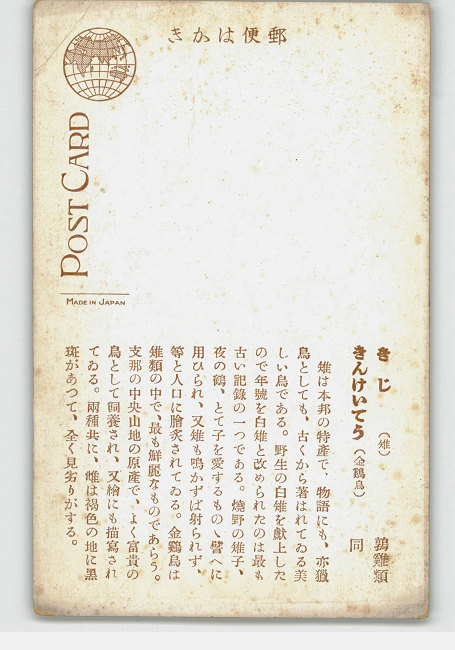 きかは便郵
POST CARD
MADE IN JAPAN
きじ（雉）　鶉雞類
きんけいてう（金鷄鳥）　同
雉は本邦の特產で、物語にも、亦獵
鳥としても、古くから著はれてゐる美
しい鳥である。野生の白雉を獻上した
ので年號を白雉と改められたのは最も
古い記錄の一つである。燒野の雉子、
夜の鶴、とて子を愛するものゝ譬へに
用ひられ、又雉も鳴かずば射られず、
等と人口に膾炙されてゐる。金鷄鳥は
雉類の中で、最も鮮麗なものであらう。
支那の中央山地の原產で、よく富貴の
鳥として飼養され、又繪にも描寫され
てゐる。兩種共に、雌は褐色の地に黑
斑があつて、全く見劣りがする。